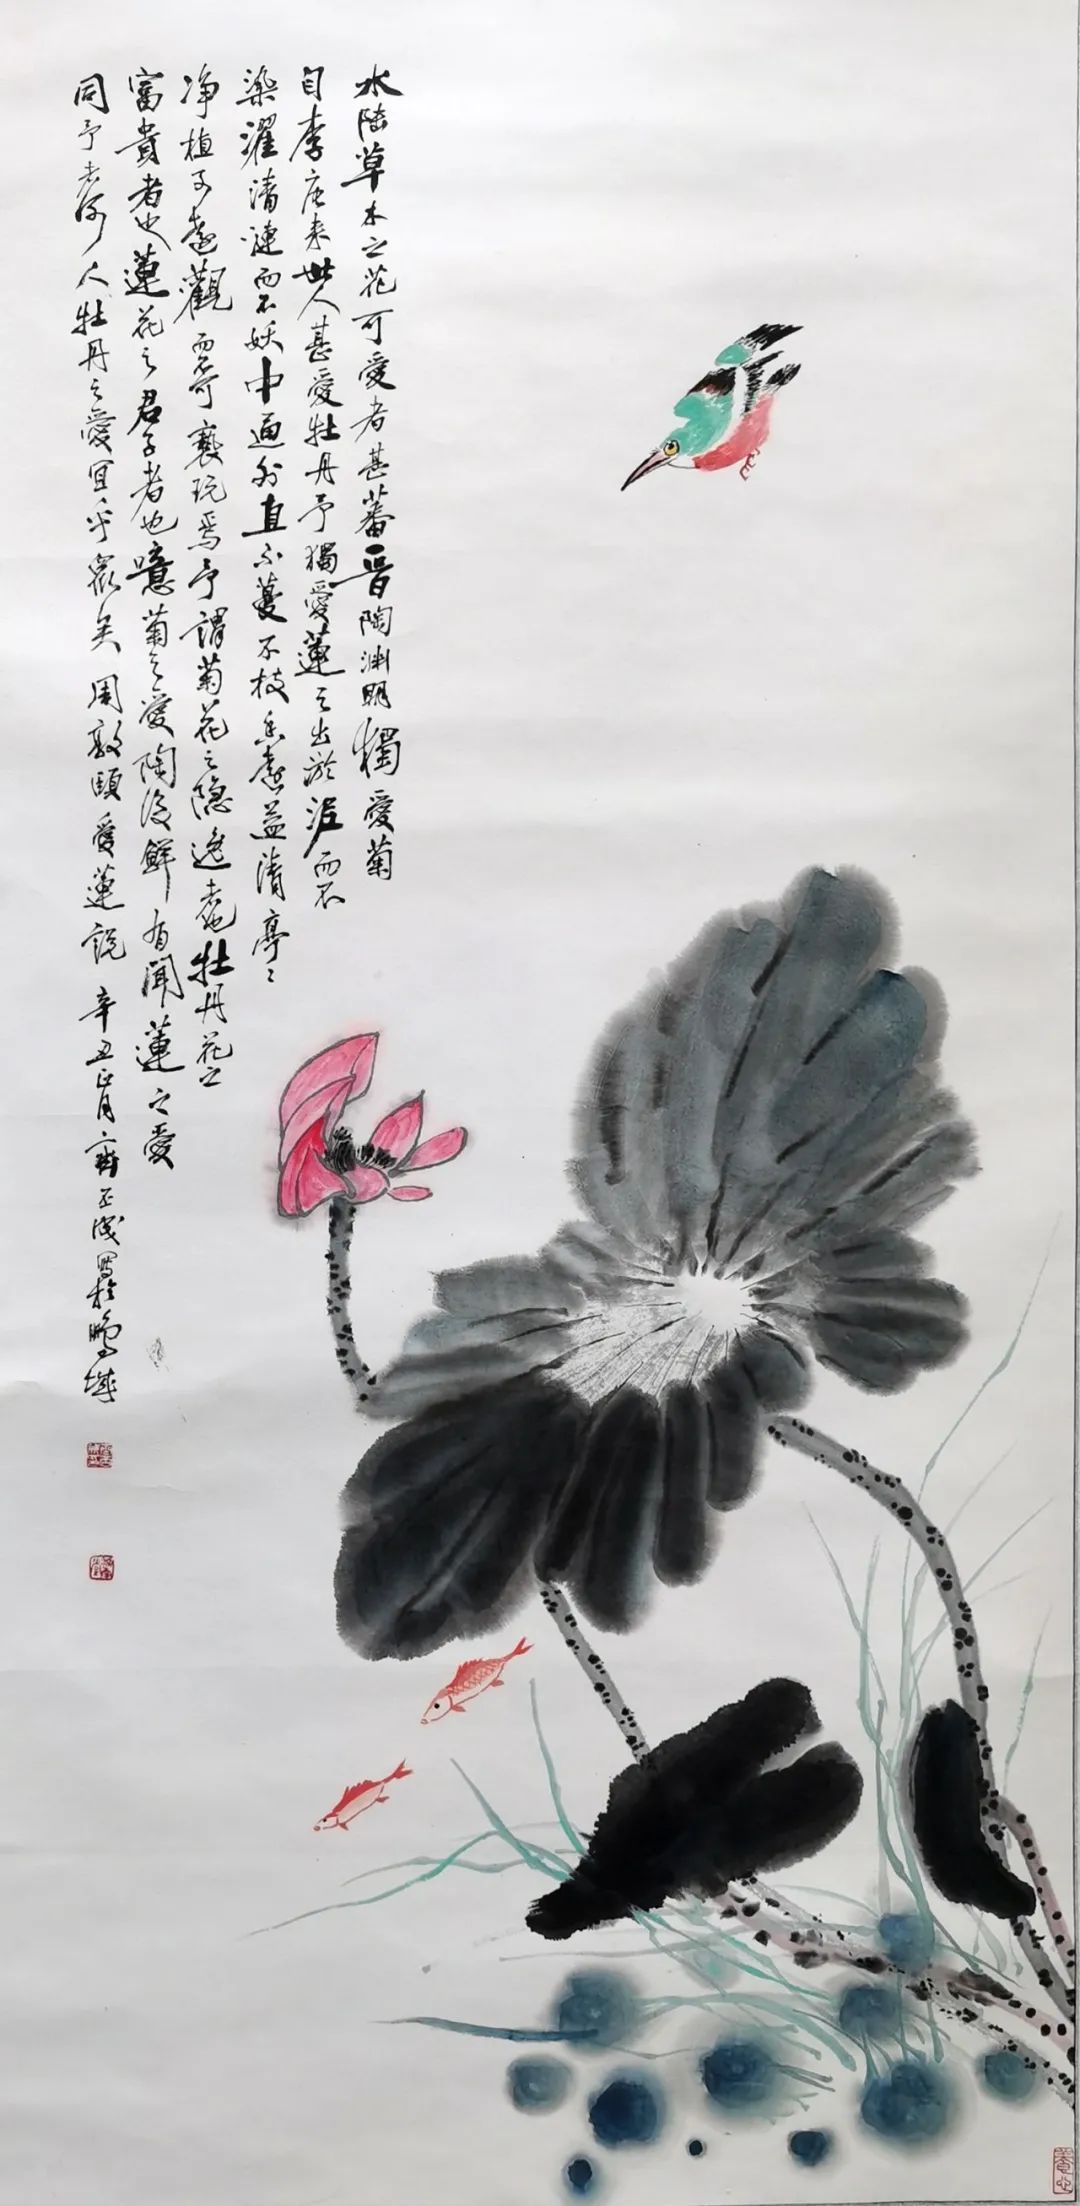 水陸草木之花可愛者甚蕃晉陶渊明獨愛菊
自李唐来世人甚愛牡丹予獨愛蓮之出淤泥而不
染濯清漣而不妖中通外直不蔓不枝香遠益清亭〻
净植可遠觀而不可褻玩焉予謂菊花之隐逸者也牡丹花之
富貴者也蓮花之君子者也噫菊之愛陶後鮮有聞蓮之愛
同予者何人牡丹之愛宜乎衆矣 周敦頤愛蓮説 辛丑正月 寫於鵬城